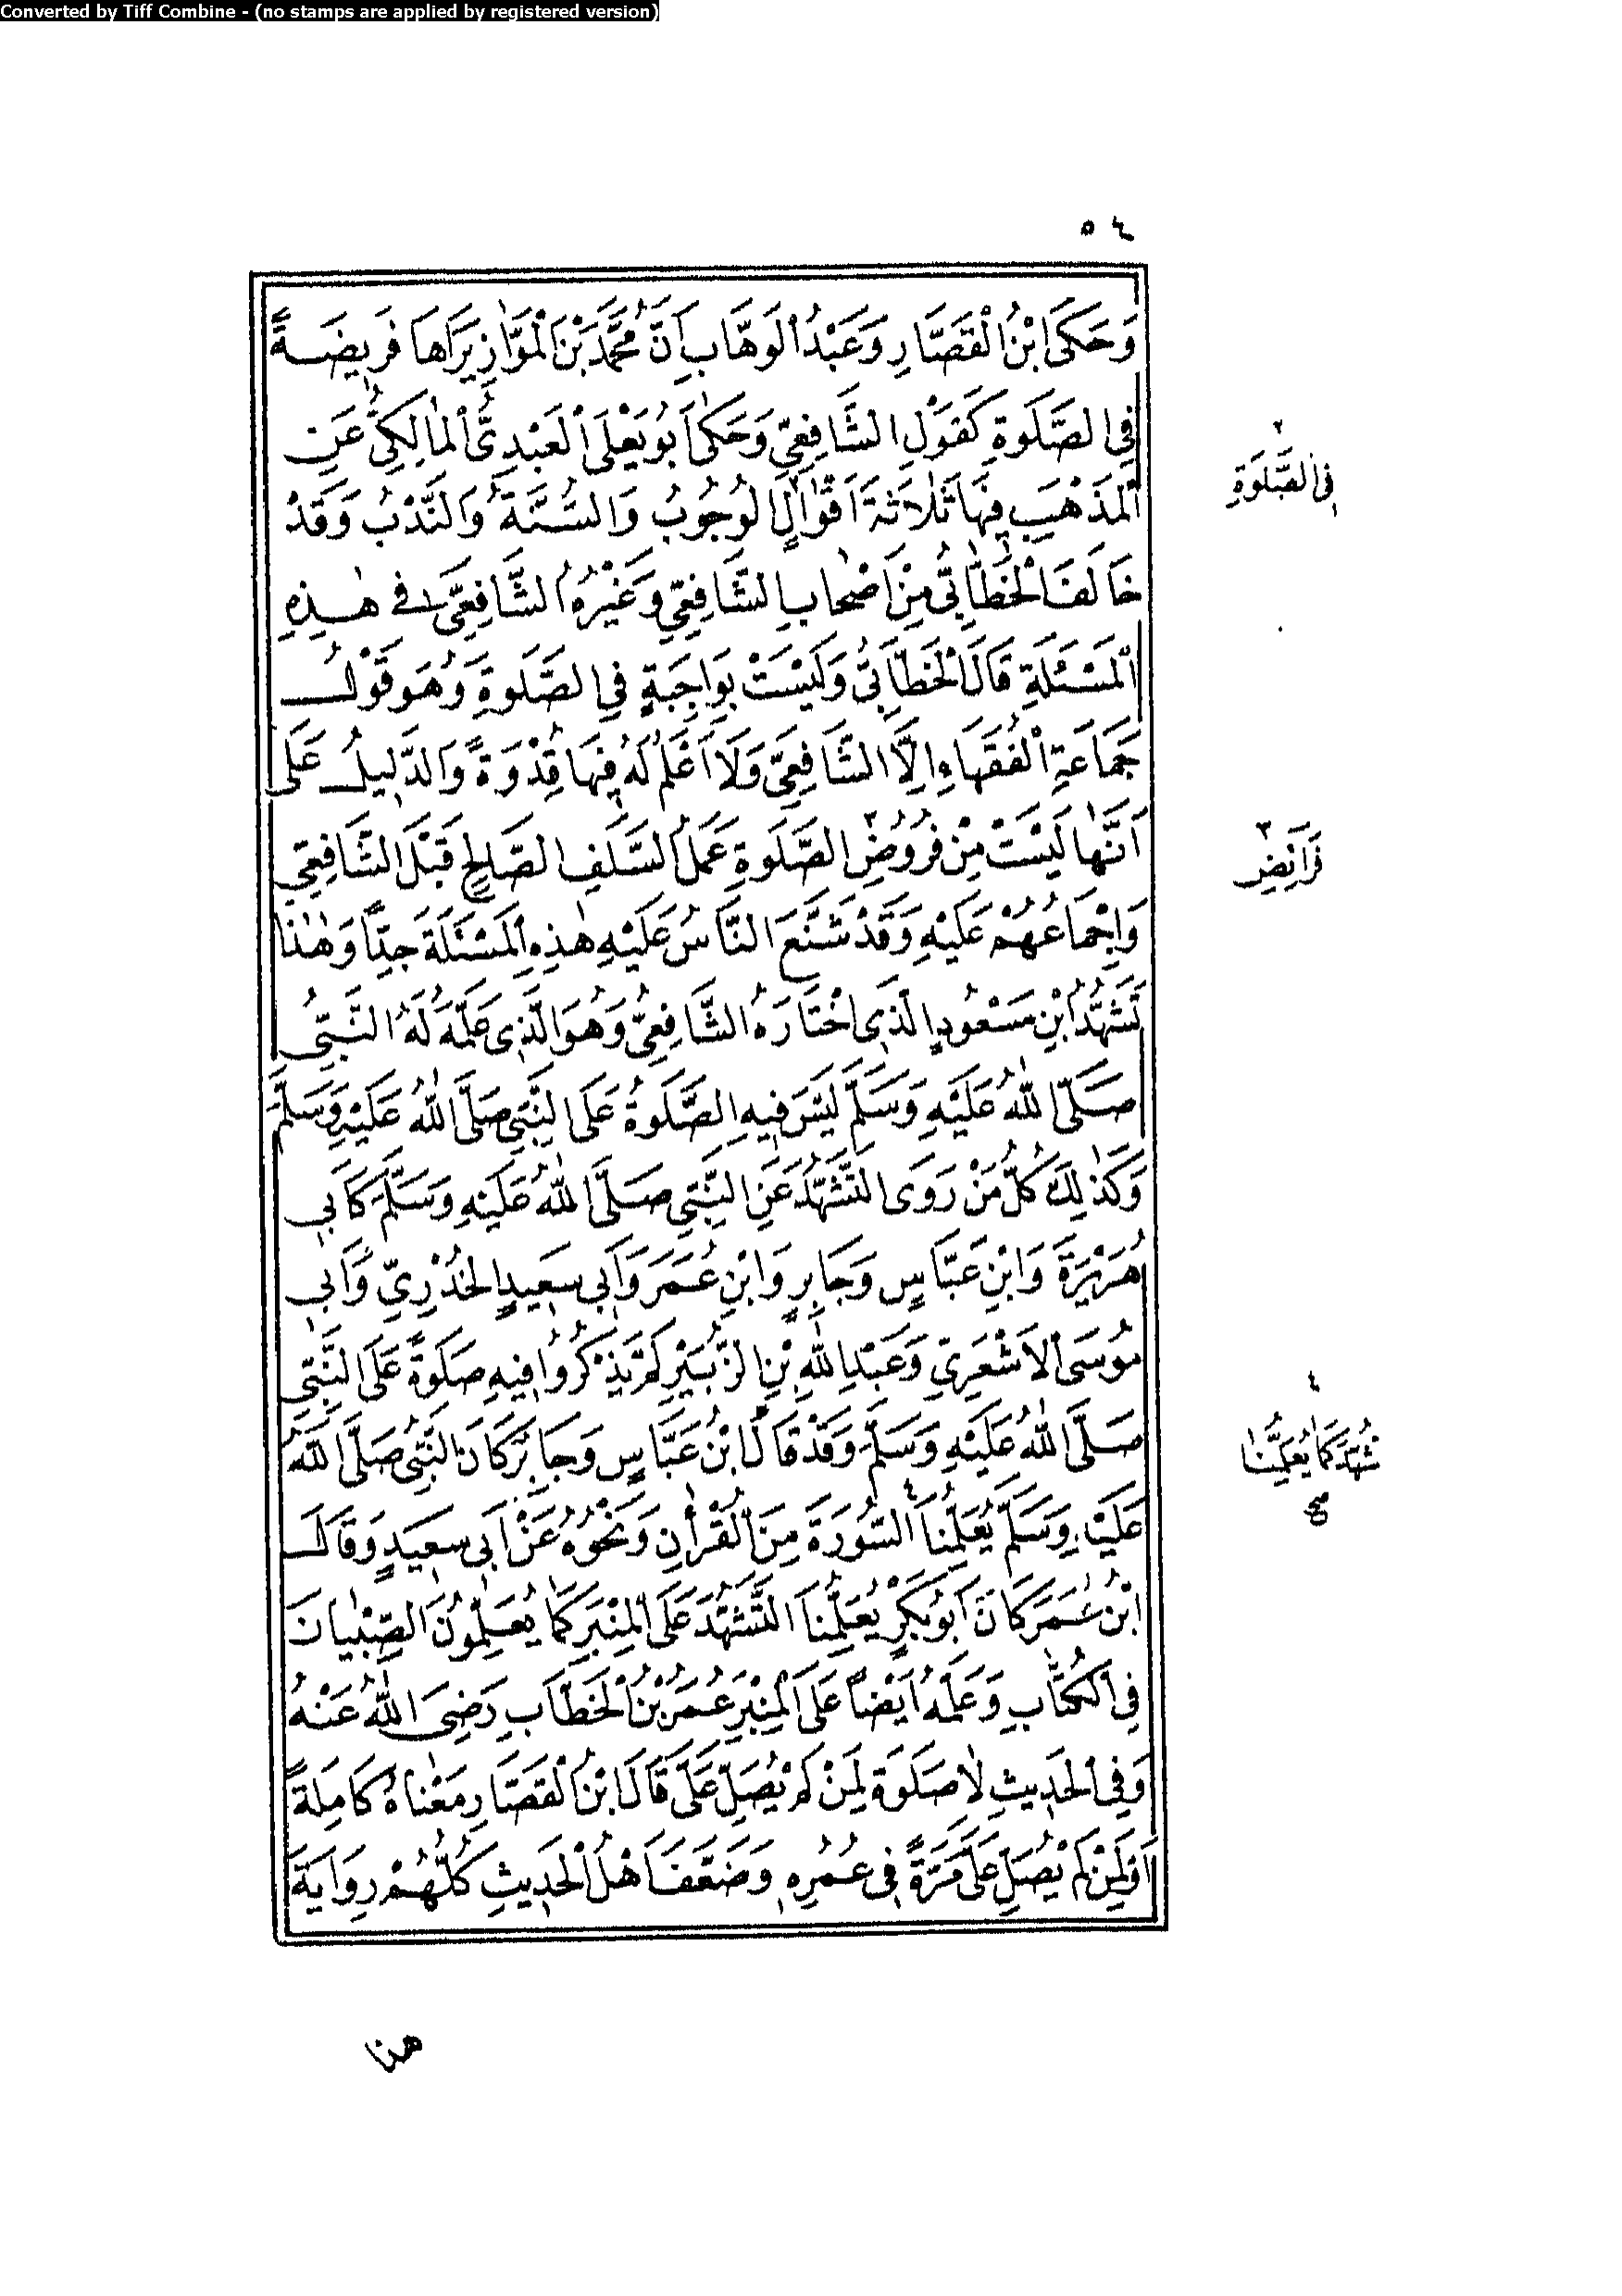 Converted by Tiff Combine - (no stamps are applied by registered version)
٥٤
وَحَكَى ابْنُ الْقَصَّارِ وَعَبْدُ الْوَهَّابِ اَنَّ مُحَمَّدَ بْنَ الْمَوَّازِ يَرَاهَا فَرِيضَةً
فِي الصَّلَوةِ كَقَوْلِ الشَّافِعِيِّ وَحَكٰى اَبُو يَعْلَى الْعَبْدِيُّ الْمَالِكِيُّ عَنِ
الْمَذْهَبِ فِيهَا ثَلَاثَةَ اَقْوَالٍ الْوُجُوبُ وَالسُّنَّةُ وَالنَّدْبُ وَقَدْ
خَالَفَ الْخَطَّابِيُّ مِنْ اَصْحَابِ الشَّافِعِيِّ وَغَيْرُهُ الشَّافِعِيَّ فِي هٰذِهِ
الْمَسْئَلَةِ قَالَ الْخَطَّابِيُّ وَلَيْسَتْ بِوَاجِبَةٍ فِي الصَّلَوةِ وَهُوَ قَوْلُ
جَمَاعَةِ الْفُقَهَاءِ اِلَّا الشَّافِعِيَّ وَلَا اَعْلَمُ لَهُ فِيهَا قُدْوَةً وَالدَّلِيلُ عَلَى
اَنَّهَا لَيْسَتْ مِنْ فُرُوضِ٣ الصَّلَوةِ عَمَلُ السَّلَفِ الصَّالِحِ قَبْلَ الشَّافِعِيِّ
وَاِجْمَاعُهُمْ عَلَيْهِ وَقَدْ شَنَّعَ النَّاسُ عَلَيْهِ هٰذِهِ الْمَسْئَلَةَ جِدًّا وَهٰذَا
تَشَهُّدُ ابْنِ مَسْعُودٍ الَّذِى اخْتَارَهُ الشَّافِعِيُّ وَهُوَ الَّذِى عَلَّمَهُ لَهُ النَّبِيُّ
صَلَّى اللّٰهُ عَلَيْهِ وَسَلَّمَ لَيْسَ فِيهِ الصَّلَوةُ عَلَى النَّبِيِّ صَلَّى اللّٰهُ عَلَيْهِ وَسَلَّمَ
وَكَذٰلِكَ كُلُّ مَنْ رَوَى التَّشَهُّدَ عَنِ النَّبِيِّ صَلَّى اللّٰهُ عَلَيْهِ وَسَلَّمَ كَاَبِي
هُرَيْرَةَ وَابْنِ عَبَّاسٍ وَجَابِرٍ وَابْنِ عُمَرَ وَاَبِي سَعِيدٍ الْخُدْرِيِّ وَاَبِي
مُوسَى الْاَشْعَرِيِّ وَعَبْدِ اللّٰهِ بْنِ الزُّبَيْرِ لَمْ يَذْكُرُوا فِيهِ صَلَوةً عَلَى النَّبِيِّ
صَلَّى اللّٰهُ عَلَيْهِ وَسَلَّمَ وَقَدْ قَالَ ابْنُ عَبَّاسٍ وَجَابِرٌ كَانَ النَّبِيُّ صَلَّى اللّٰهُ
عَلَيْهِ وَسَلَّمَ يُعَلِّمُنَا٤ السُّورَةَ مِنَ الْقُرْاٰنِ وَنَحْوُهُ عَنْ اَبِي سَعِيدٍ وَقَالَ
ابْنُ عُمَرَ كَانَ اَبُو بَكْرٍ يُعَلِّمُنَا التَّشَهُّدَ عَلَى الْمِنْبَرِ كَمَا يُعَلِّمُونَ الصِّبْيَانَ
فِي الْكُتَّابِ وَعَلَّمَهُ اَيْضًا عَلَى الْمِنْبَرِ عُمَرُ بْنُ الْخَطَّابِ رَضِيَ اللّٰهُ عَنْهُ
وَفِي الْحَدِيثِ لَا صَلَوةَ لِمَنْ لَمْ يُصَلِّ عَلَيَّ قَالَ ابْنُ الْقَصَّارِ مَعْنَاهُ كَامِلَةً
اَوْ لِمَنْ لَمْ يُصَلِّ عَلَيَّ مَرَّةً فِي عُمُرِهِ وَضَعَّفَ اَهْلُ الْحَدِيثِ كُلُّهُمْ رِوَايَةَ
٢
فِي الصَّلَوةِ
٣
فَرَائِضِ
٤
تَشَهُّدَ كَمَا يُعَلِّمُنَا
صح
هذا